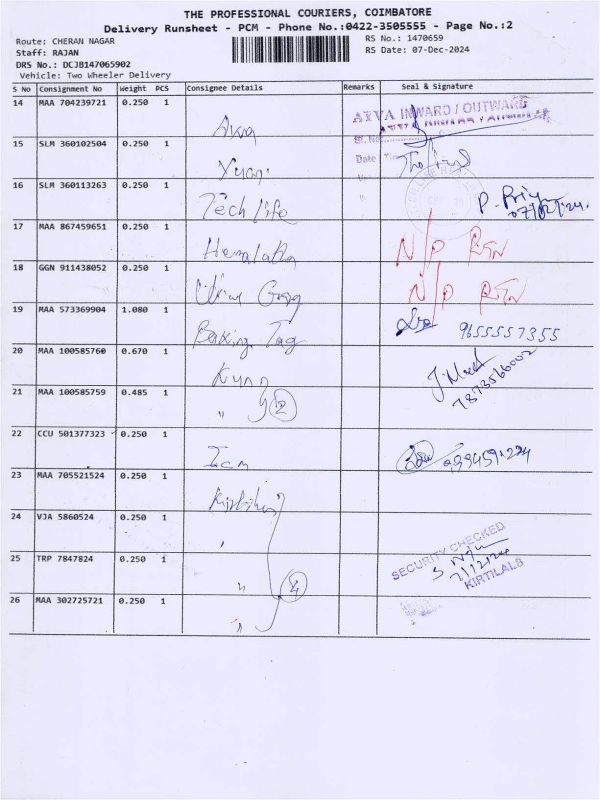 THE PROFESSIONAL COURIERS, COIMBATORE
Delivery Runsheet - PCM - Phone No.:0422-3505555 - Page No.:2
Route: CHERAN NAGAR
RS No.: 1470659
Staff: RAJAN
RS Date: 07-Dec-2024
DRS No.: DCJB147065902
Vehicle: Two Wheeler Delivery
S No Consignment No Weight PCS Consignee Details Remarks Seal & Signature
14 MAA 704239721 0.250 1
AIVA INWARD / OUTWARD
15 SLM 360102504 0.250 1 Yuani
Date
16 SLM 360113263 0.250 1 Tech life P. Priy
07/12/24
17 MAA 867459651 0.250 1 Hemalatha N/P RTN
18 GGN 911438052 0.250 1 N/P RTN
19 MAA 573369904 1.080 1 Boxing Tag 9655557355
20 MAA 100585760 0.670 1
7873566002
21 MAA 100585759 0.485 1 " 2
22 CCU 501377323 0.250 1 Icm
23 MAA 705521524 0.250 1
24 VJA 5860524 0.250 1 "
SECURITY CHECKED
25 TRP 7847824 0.250 1 " 4
7/12/24
KIRTILALS
26 MAA 302725721 0.250 1 "